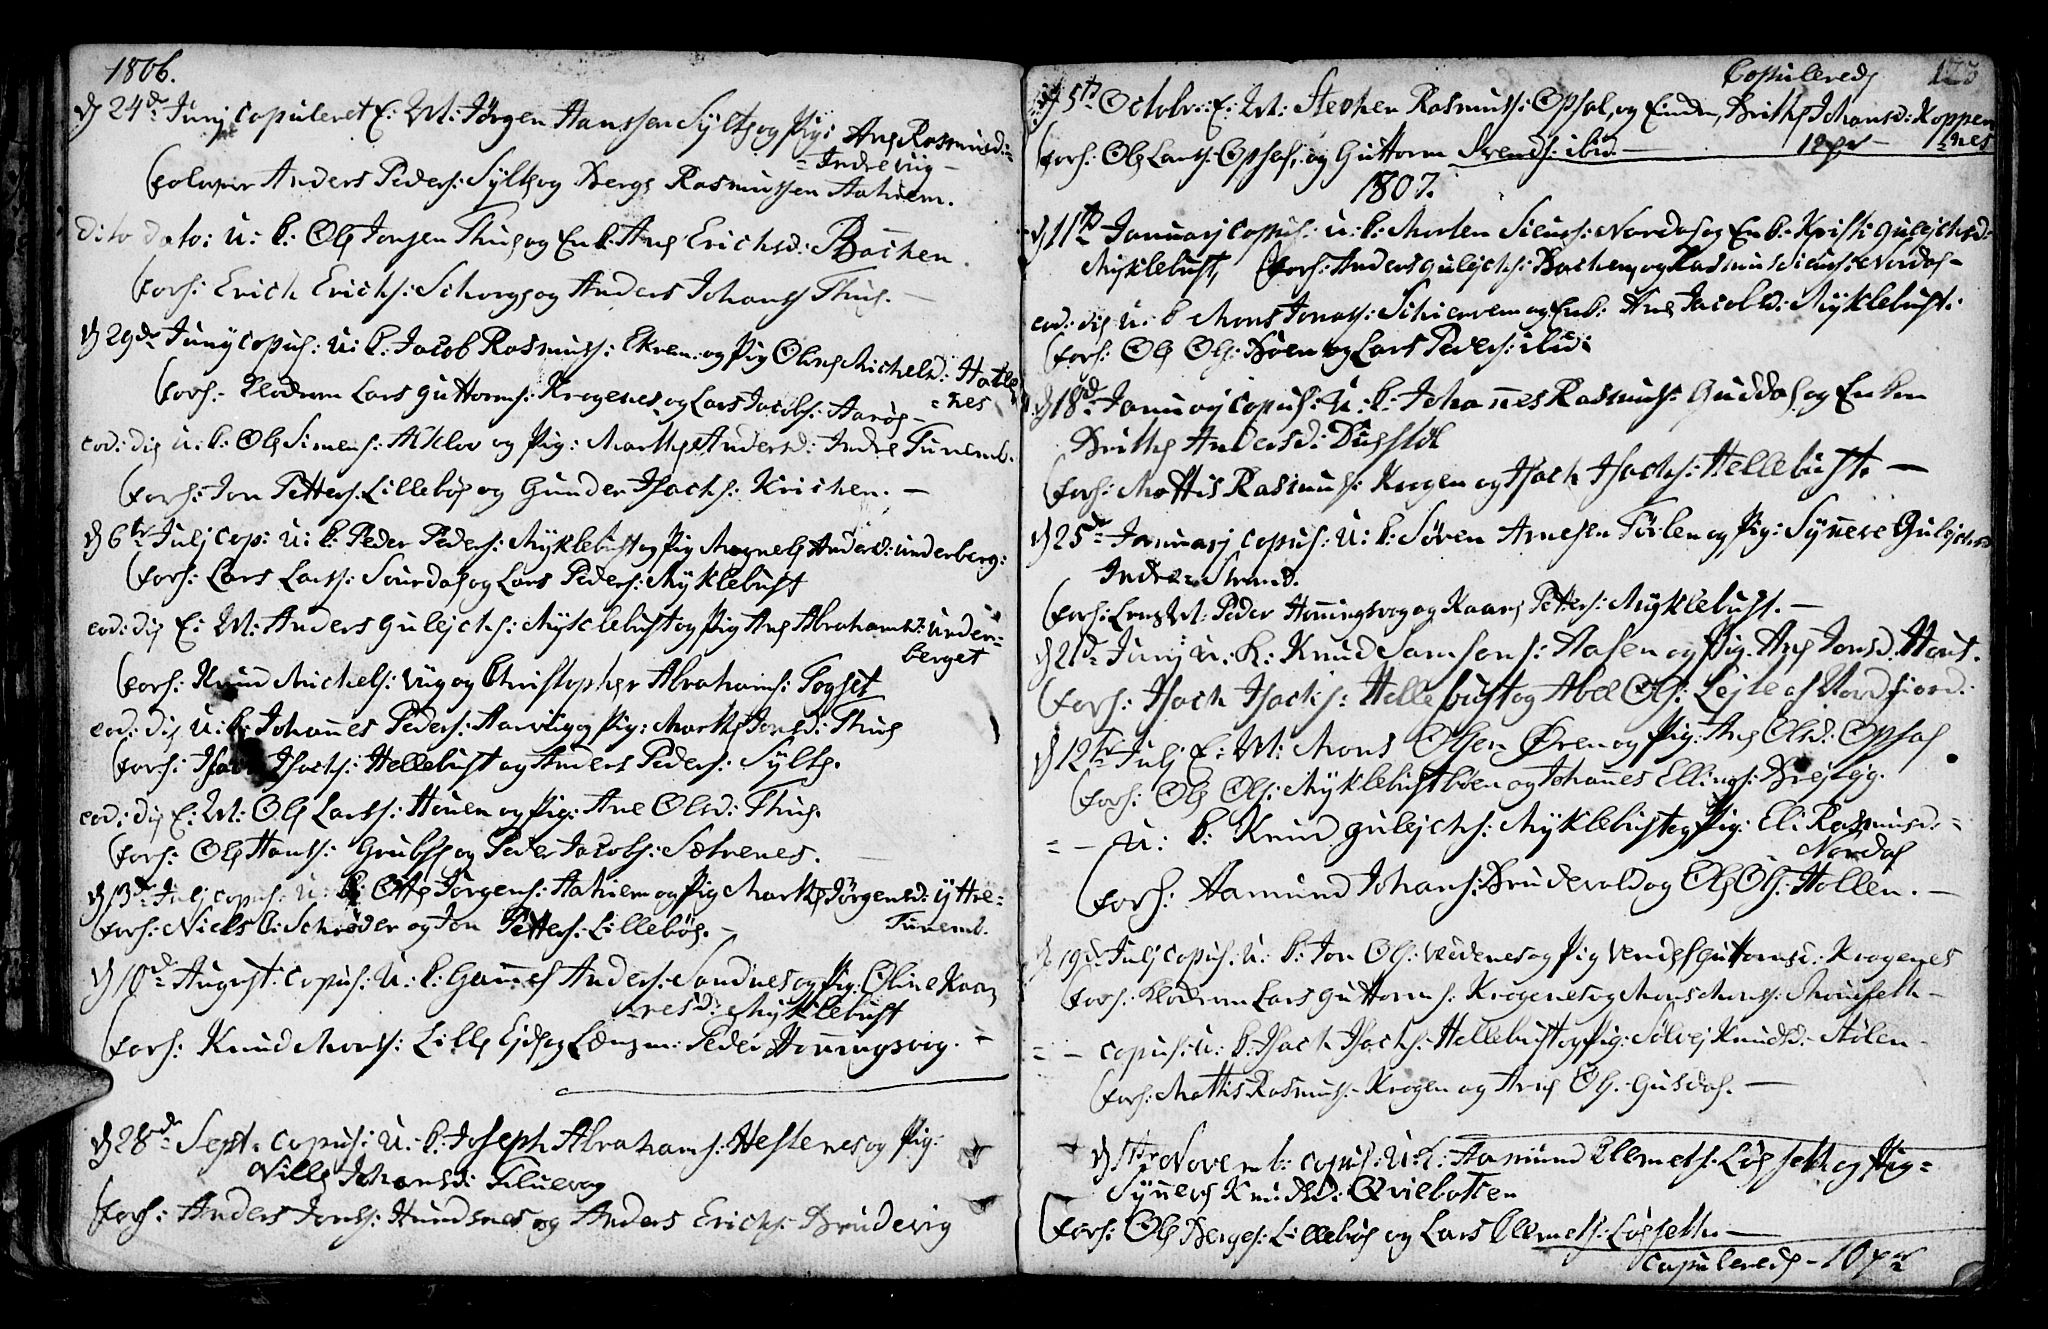 1806.
24de Junj copuleret E: M: Jörgen Hanssen Sylte og Pig: Ane Rasmusd:=
=Indrevig -
Anders Peders: Sylte og Berge Rasmussen Aahiem.
dito dato: U: K: Ole Jonsen Thue og Enk. Ane Erichsd: Bachen.
fors: Erich Erichs: Schorge og Anders Johans Thue. -
29de Junj copul: U: K: Jacob Rasmuss: Ekrem og Pig Oline Michelsd: Hatle
=nes
fors: Klodrem Lars Guttorms: Kragenes og Lars Jacobs: Aarøe -
eod: die U: K: Ole Simens: Aklev og Pig: Marthe Andersd: Indre Furend.
fors: Jon Petters: Lillebøe og Gunder Isachs: Krichen. -
6te Julj cop: U: K: Peder Peders: Myklebust og Pig Magnele Andersd: Underberg:
fors: Lars Larss: Sourdal og Lars Peders: Myklebust
eod: die E: M: Anders Gulejchs: Myklebust og Pig Ane Abrahamsd: Under=
berget
fors: Knud Michels: Viig og Christopher Abrahams: Fogset
eod: die U: K: Johannes Peders: Aarvig og Pig: Marthe Jonsd: Thue
fors: Isach Isachs: Hellebust og Anders Peders: Sylte.
eod: die E: M: Ole Larss: Houen og Pig: Ane Olsd: Thue.
fors: Ole Hanss: Grubse og Peder Jacobs: Sætrenes. -
13de Julj copul: U: K: Otte Jörgens: Aahiem og Pig Marthe Jörgensd: Yttre=
Furend.
fors: Niels B: Schrøder og Jon Petters: Lillebøe. -
10de August: copul: U: K: Gunnes Anders: Sandnes og Pig: Oline Kaar
=nesd: Myklebust
fors: Knud Monss: Lille Ejde og Lænsm: Peder Honningsvog. -
28de Sept: copul: U: K: Joseph Abrahams: Hestenes og Pig:
Nille Johansd: Filuevog
fors: Anders Jonss: Hundsnes og Anders Erichs Brudevig
Copulerede 123
5te Octobr: E: M: Stephen Rasmuss: Opsal, og Enken, Brithe Johansd: Koppen
=nes
fors: Ole Larss: Opsal, og Guttorm Svends: ibid. - 12 par -
1807.
11te Januarj copul: U: K: Morten Siurs: Nordal og Enk: Kristi Gulejchsd:
Myklebust, fors: Anders Gulejchs: Bachen, og Rasmus Siurs: Nordal -
eod: die U: K Mons Jonass: Schierven og Enk: Ane Jacobsd: Myklebust:
fors: Ole Ols: Bøen og Lars Peders: ibid:
18de Januarj copul: U: K: Johannes Rasmuss: Guddal og Enken
Brithe Andersd:
fors: Mattis Rasmuss: Kragen og Isach Isachs: Hellebust. -
25de Januarj copul: U: K: Søren Arnesen Førlen og Pig: Synneve Gulejchsd
Indre= Strand.
fors: Lens M: Peder Honningsvog og Kaare Petters: Myklebust. -
21de Junj U: K: Knud Samsons: Aasen og Pig. Ane Jonsd: Houe.
fors: Isach Isachs: Hellebust og Abel Ols: Lejte af Nordfiord.
12te Julj E: M: Mons Olsen Øren og Pig: Ane Olsd: Opsal
fors: Ole Ols: Myklebustbøen og Johannes Ellings: Drejeje.
= - U: K: Knud Gulejchs: Myklebust og Pig: Eli Rasmusd:=
Nordal
fors: Aamund Johans: Brudevold og Ole Ols: Hollen. -
19de Julj copul: U: K: Jon Ols: Veidenes og Pig Vendel Guttormsd: Kragenes
fors: Klodrem Lars Guttorms: Kragenes og Mons Monss: Mouseth -
= - copul: U: K: Isach Isachs: Hellebust og Pig: Sølvej Knudsd: Stølen -
fors: Mattis Rasmuss: Kragen og Arne Ols: Gusdal. -
1te Novemb: copul: U: K: Aamund Clemets: Løseth og Pig=
Synneve Knudsd: Qvilbotten
fors: Ole Berges: Lillebøe og Lars Clemets: Løseth. -
copulerede - 10 par